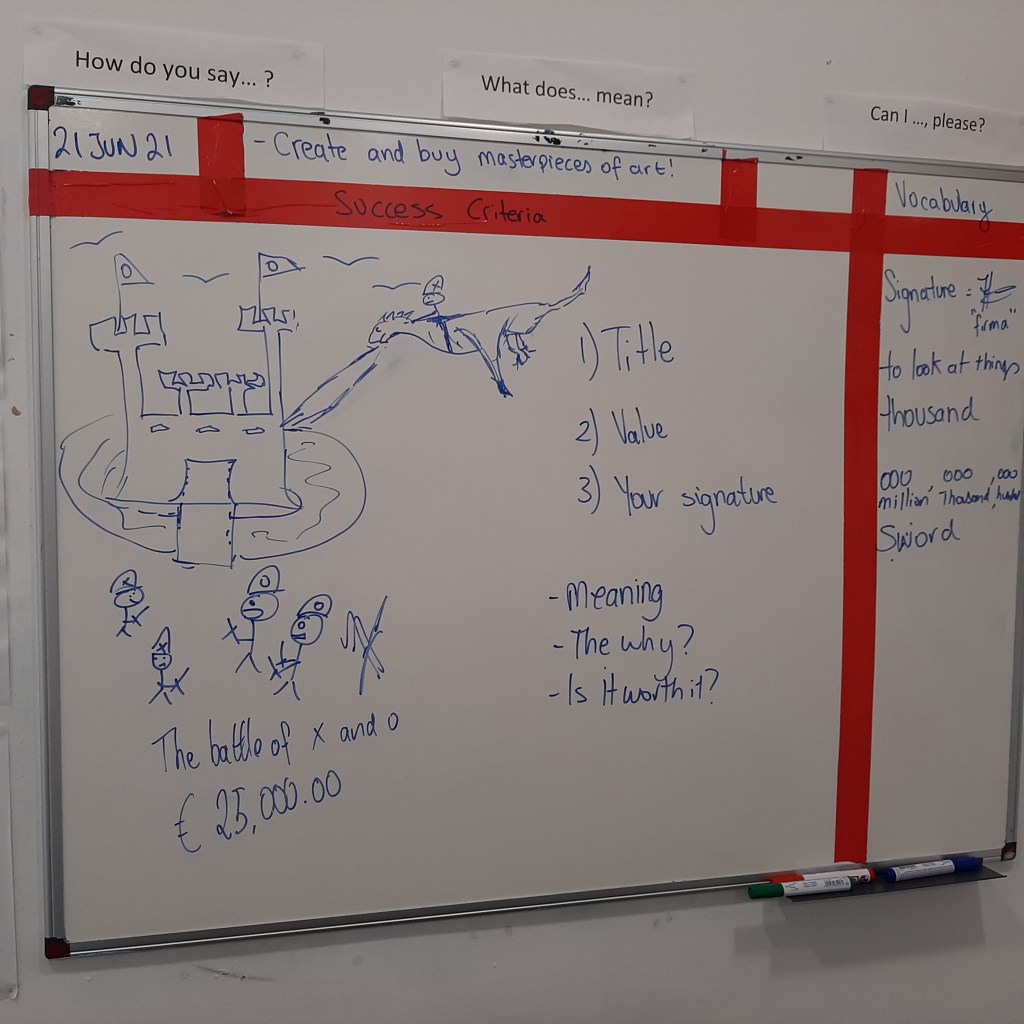 How do you say... ?
What does... mean?
Can I ..., please?
21 JUN 21
- Create and buy masterpieces of art!
Success Criteria
Vocabulary
O
O
X
1) Title
2) Value
3) Your signature
- Meaning
- The why?
- Is it worth it?
X
X
O
O
The battle of x and o
€ 25,000.00
Signature =
"firma"
to look at things
thousand
000, 000, 000
million, Thousand,
Sword